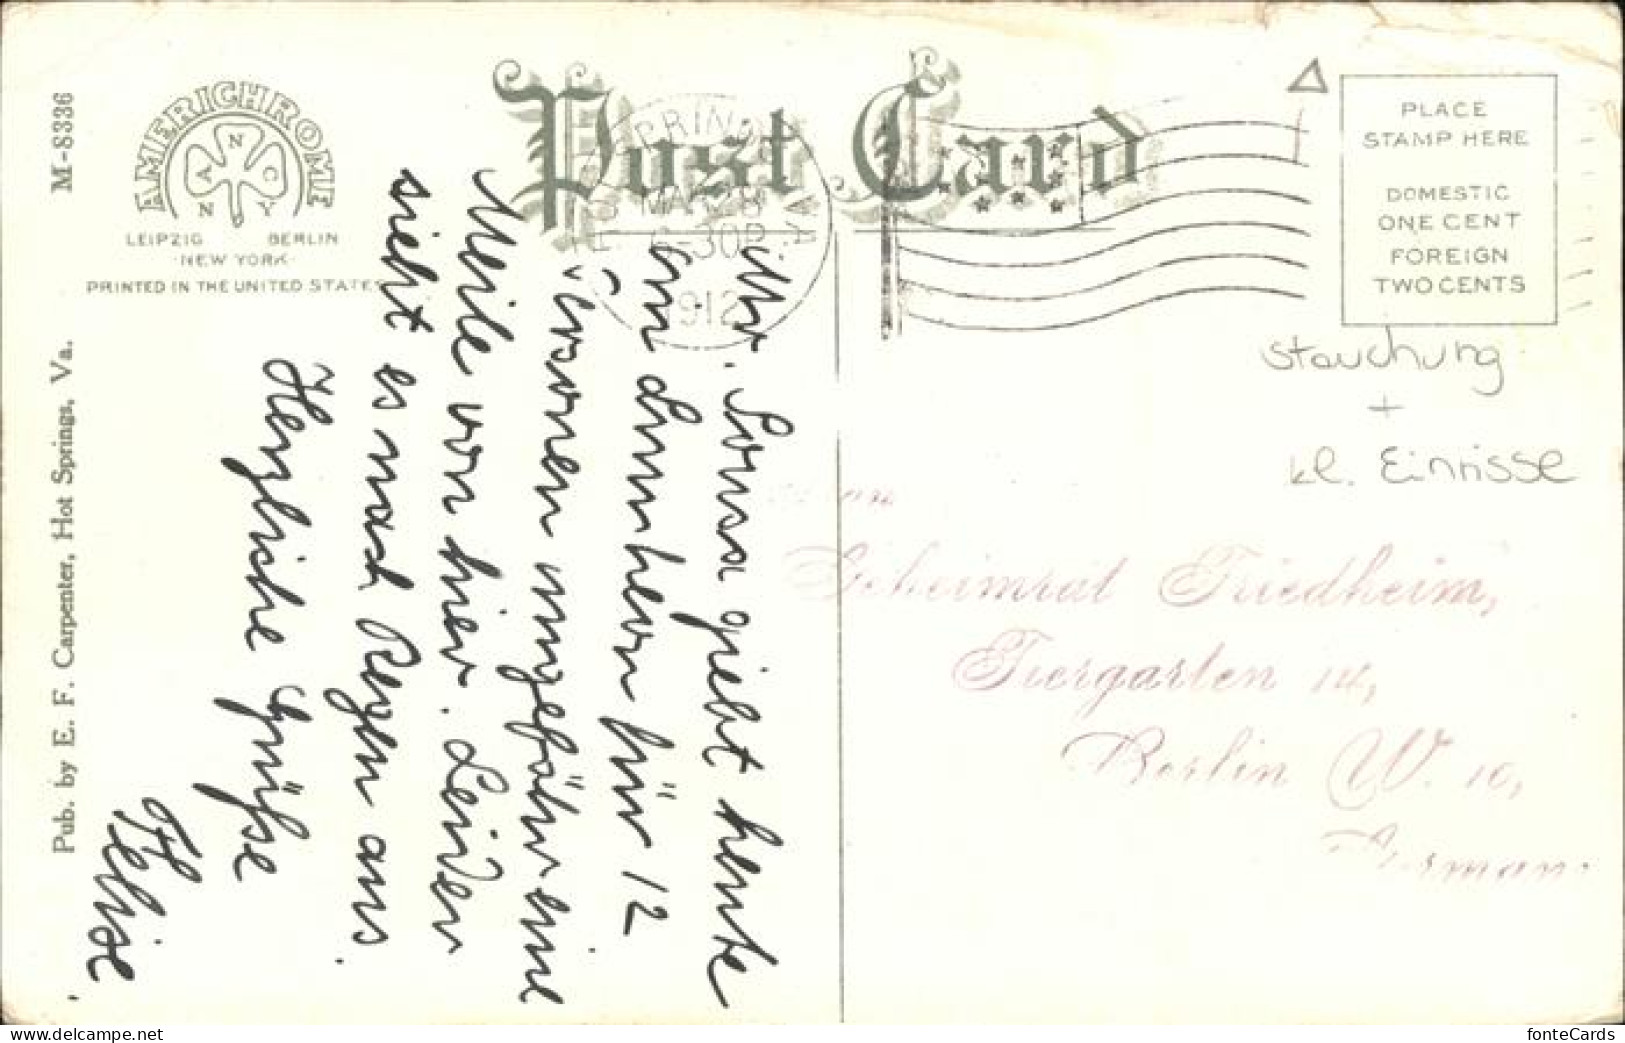 Post Card
M-8336
AMERICHROME
NANCY
LEIPZIG BERLIN
NEW YORK
PRINTED IN THE UNITED STATES
Pub. by E. F. Carpenter, Hot Springs, Va.
MAR 28
6-30P
1912
VA
PLACE
STAMP HERE
DOMESTIC
ONE CENT
FOREIGN
TWO CENTS
Stauchung
+
kl. Einrisse
Mr. Sousa giebt heute
ein Luncheon für 12
Personen ungefähr eine
Meile von hier. Leider
sieht es nach Regen aus.
Herzliche Grüße
Geheimrat Friedheim,
Tiergarten 14,
Berlin W. 10,
fonteCards